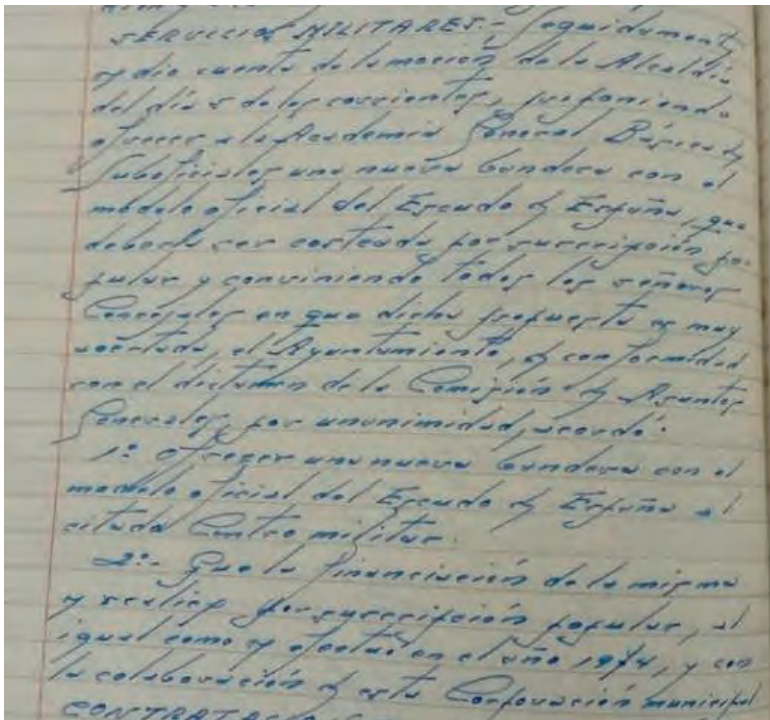 SERVICIOS MILITARES.- Seguidamente
se dio cuenta de la moción de la Alcaldía
del día 5 de los corrientes, proponiendo
ofrecer a la Academia General Básica de
Suboficiales una nueva bandera con el
modelo oficial del Escudo de España, que
deberá ser costeada por suscripción po-
pular y conviniendo todos los señores
Concejales en que dicha propuesta es muy
acertada, el Ayuntamiento, de conformidad
con el dictamen de la Comisión de Asuntos
Generales, por unanimidad, acordó:
1º Ofrecer una nueva bandera con el
modelo oficial del Escudo de España al
citado Centro militar.
2º.- Que la financiación de la misma
se realice por suscripción popular, al
igual como se efectuó en el año 1974, y con
la colaboración de esta Corporación municipal